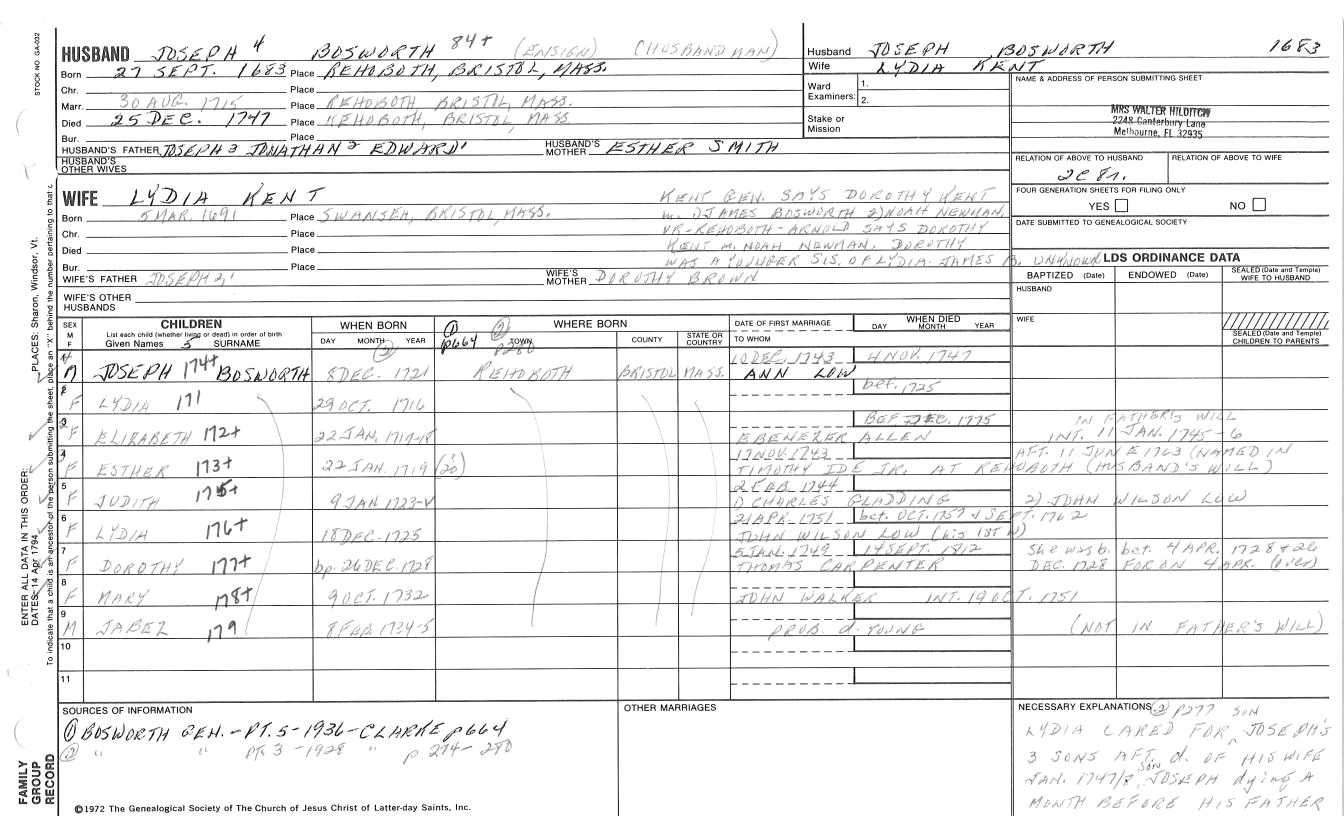 STOCK NO. GA-032
HUSBAND JOSEPH 4 BOSWORTH 84+ (ENSIGN) (HUSBANDMAN)
Born 27 SEPT. 1683 Place REHOBOTH, BRISTOL, MASS.
Chr. Place
Marr. 30 AUG. 1715 Place REHOBOTH, BRISTOL, MASS.
Died 25 DEC. 1747 Place REHOBOTH, BRISTOL, MASS
Bur. Place
HUSBAND'S FATHER JOSEPH 3 JONATHAN 2 EDWARD 1 HUSBAND'S MOTHER ESTHER SMITH
HUSBAND'S OTHER WIVES
Husband JOSEPH BOSWORTH 1683
Wife LYDIA KENT
Ward 1.
Examiners: 2.
Stake or Mission
NAME & ADDRESS OF PERSON SUBMITTING SHEET
MRS WALTER HILDITCH
2248 Canterbury Lane
Melbourne, FL 32935
RELATION OF ABOVE TO HUSBAND RELATION OF ABOVE TO WIFE
2C 8r.
FOUR GENERATION SHEETS FOR FILING ONLY
YES NO
DATE SUBMITTED TO GENEALOGICAL SOCIETY
WIFE LYDIA KENT
Born 5 MAR. 1691 Place SWANSEA, BRISTOL, MASS.
Chr. Place
Died Place
Bur. Place
WIFE'S FATHER JOSEPH 2, 1 WIFE'S MOTHER DOROTHY BROWN
WIFE'S OTHER HUSBANDS
KENT GEN. SAYS DOROTHY KENT
m. 1) JAMES BOSWORTH 2) NOAH NEWMAN,
VR-REHOBOTH-ARNOLD SAYS DOROTHY
KENT m. NOAH NEWMAN. DOROTHY
WAS A YOUNGER SIS. OF LYDIA. JAMES B. UNKNOWN
LDS ORDINANCE DATA
BAPTIZED (Date) ENDOWED (Date) SEALED (Date and Temple) WIFE TO HUSBAND
HUSBAND
WIFE
SEALED (Date and Temple) CHILDREN TO PARENTS
SEX M F CHILDREN WHEN BORN WHERE BORN DATE OF FIRST MARRIAGE WHEN DIED
List each child (whether living or dead) in order of birth
Given Names 5 SURNAME DAY MONTH YEAR TOWN COUNTY STATE OR COUNTRY TO WHOM DAY MONTH YEAR
② ① p664 ② p280
M JOSEPH 174+ BOSWORTH 8 DEC. 1721 REHOBOTH BRISTOL MASS. 10 DEC. 1743 ANN LOW 4 NOV. 1747
F LYDIA 171 29 OCT. 1716 bef. 1725
F ELIZABETH 172+ 22 JAN. 1717-18 EBENEZER ALLEN BEF DEC. 1775 IN FATHER'S WILL INT. 11 JAN. 1745-6
F ESTHER 173+ 22 JAN. 1719 (20) 17 NOV. 1743 TIMOTHY IDE JR. AT REHOBOTH AFT. 11 JUNE 1763 (NAMED IN (HUSBAND'S WILL)
5 F JUDITH 175+ 9 JAN 1723-4 2 FEB 1744 1) CHARLES GLADDING 2) JOHN WILSON LOW
6 F LYDIA 176+ 18 DEC. 1725 21 APR. 1751 JOHN WILSON LOW (his 1ST W) bet. OCT. 1757 & SEPT. 1762
7 F DOROTHY 177+ bp. 26 DEC. 1728 5 JAN. 1749 THOMAS CARPENTER 14 SEPT. 1812 She was b. bet. 4 APR. 1728 & 26 DEC. 1728 FOR ON 4 APR. (over)
8 F MARY 178+ 9 OCT. 1732 JOHN WALKER INT. 19 OCT. 1751
9 M JABEZ 179 8 FEB 1734-5 PROB. d. YOUNG (NOT IN FATHER'S WILL)
10
11
SOURCES OF INFORMATION
① BOSWORTH GEN. - PT. 5 - 1936 - CLARKE p664
② " " PT. 3 - 1928 " p 274 - 280
OTHER MARRIAGES
NECESSARY EXPLANATIONS ② P277
LYDIA CARED FOR SON JOSEPH'S
3 SONS AFT. d. OF HIS WIFE
JAN. 1747/8, SON JOSEPH dying A
MONTH BEFORE HIS FATHER
©1972 The Genealogical Society of The Church of Jesus Christ of Latter-day Saints, Inc.
FAMILY GROUP RECORD
ENTER ALL DATA IN THIS ORDER:
DATES: 14 Apr 1794
PLACES: Sharon, Windsor, Vt.
To indicate that a child is an ancestor of the person submitting the sheet, place an "X" behind the number pertaining to that c